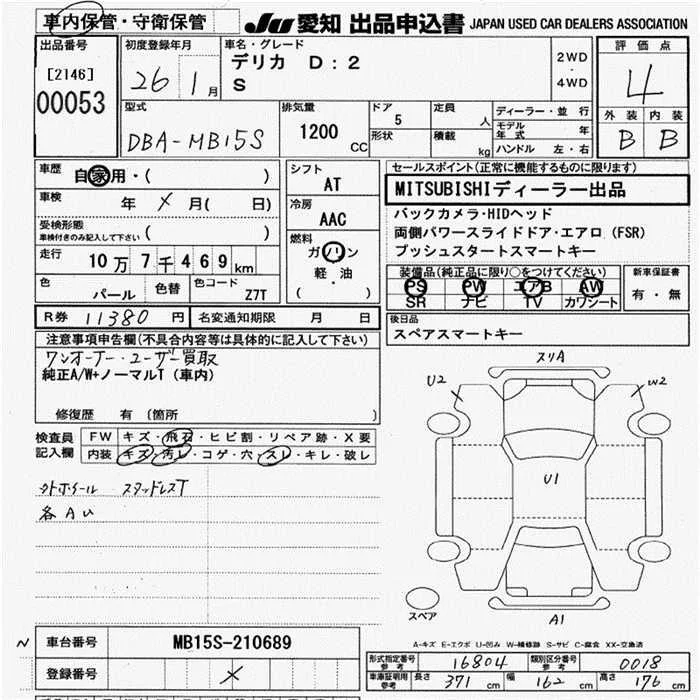 車内保管・守衛保管
JU 愛知 出品申込書 JAPAN USED CAR DEALERS ASSOCIATION
出品番号 [2146] 00053
初度登録年月 26 1月
車名・グレード デリカ D:2 S
2WD・4WD
評価点 4
外装 内装
B B
型式 DBA-MB15S
排気量 1200 CC
ドア 5
形状
定員 人
積載 kg
ディーラー・並行
モデル年式 年
ハンドル 左・右
車歴 自家用・( )
車検 年 メ 月( 日)
受検形態 車検付きのみ記入して下さい ( )
走行 10万7千469km
色 パール 色替 色コード Z7T
シフト AT
冷房 AAC
燃料 ガソリン 軽・油 ( )
セールスポイント(正常に機能するものに限ります)
MITSUBISHIディーラー出品
バックカメラ・HIDヘッド
両側パワースライドドア・エアロ(FSR)
プッシュスタートスマートキー
装備品(純正品に限り○をつけてください)
PS PW エアB AW
SR ナビ TV カワシート
新車保証書 有・無
R券 11380 円 名変通知期限 月 日
後日品 スペアスマートキー
注意事項申告欄(不具合内容等は具体的に記入して下さい)
ワンオーナー・ユーザー買取
純正A/W+ノーマルT(車内)
修復歴 有〔箇所 〕
検査員記入欄
FW キズ・飛石・ヒビ割・リペア跡・X要
内装 キズ・汚レ・コゲ・穴・スレ・キレ・破レ
ソトホイール スタッドレスT
各AU
スリA
U2 W2
U1
スペア
A1
A-キズ E-エクボ U-凹み W-補修跡 S-サビ C-腐食 XX-交換済
N 車台番号 MB15S-210689
登録番号 メ
形式指定番号 参考 16804 類別区分番号 参考 0018
車庫証明用 参考 長さ 371 cm 幅 162 cm 高さ 176 cm